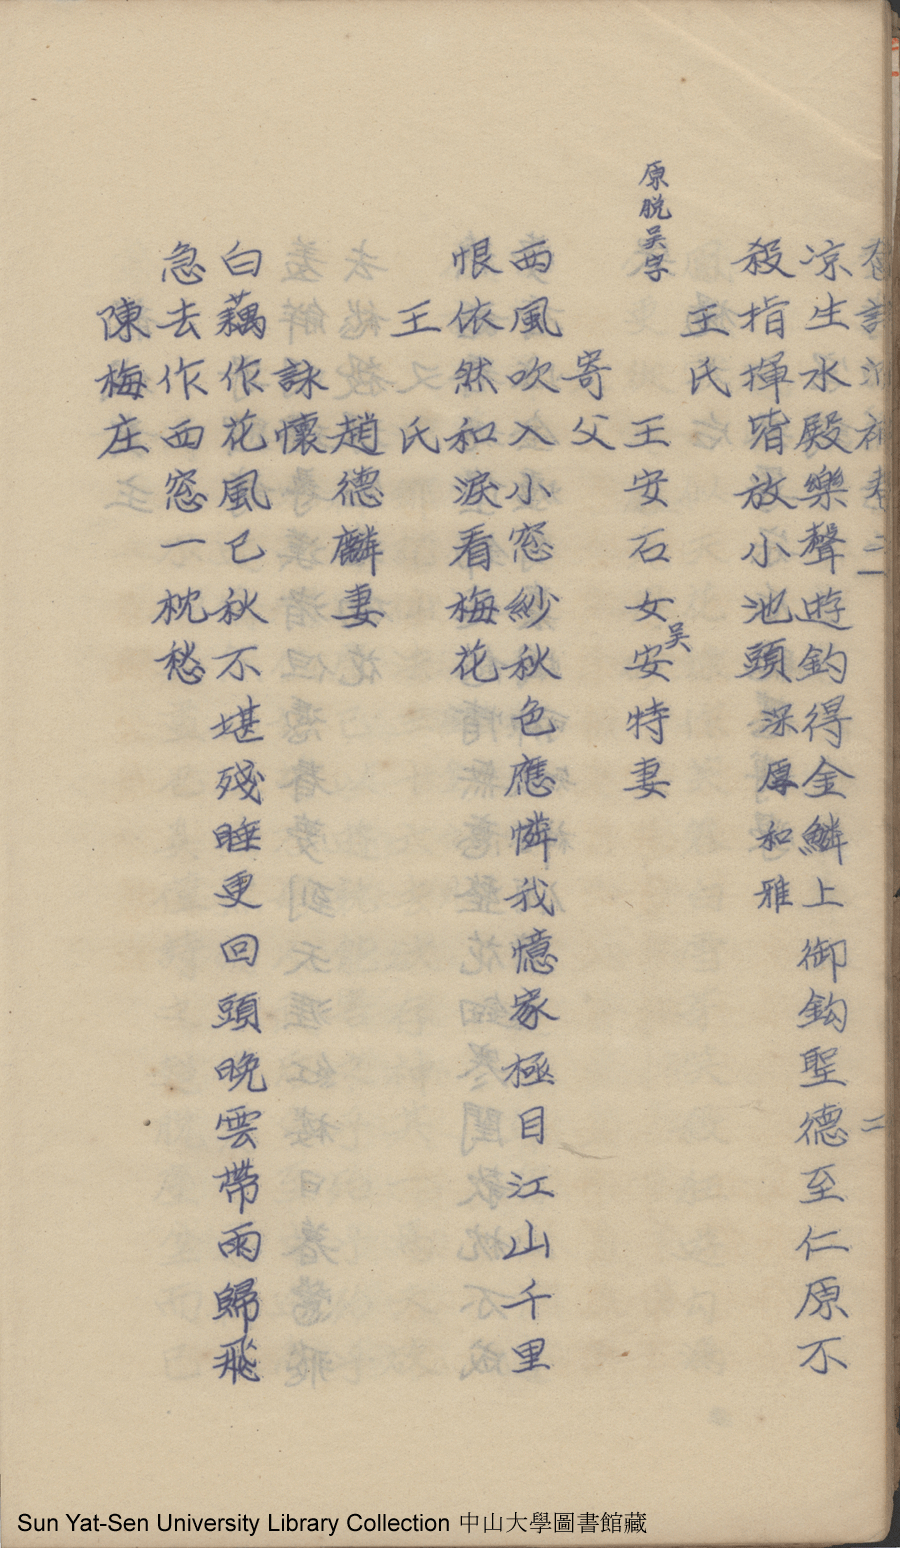 涼生水殿樂聲遊釣得金鱗上御鈎聖德至仁原不
殺指揮皆放小池頭深厚和雅
王氏
王安石女吳安特妻
原脫吳字
寄父
西風吹入小窓紗秋色應憐我憶家極目江山千里
恨依然和淚看梅花
王氏
趙德麟妻
詠懷
白藕作花風已秋不堪殘睡更回頭晚雲帶雨歸飛
急去作西窓一枕愁
陳梅庄
二
Sun Yat-Sen University Library Collection 中山大學圖書館藏